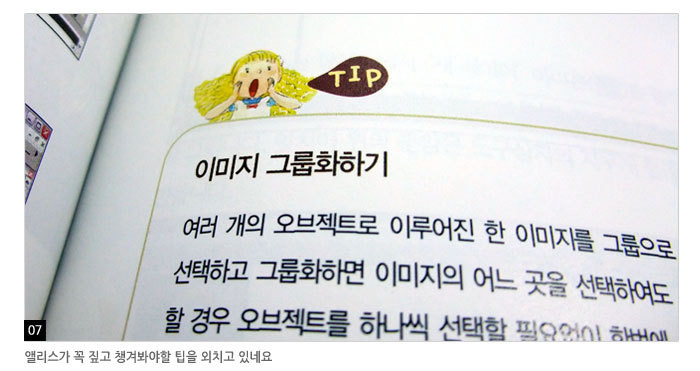 TIP
이미지 그룹화하기
여러 개의 오브젝트로 이루어진 한 이미지를 그룹으로
선택하고 그룹화하면 이미지의 어느 곳을 선택하여도
할 경우 오브젝트를 하나씩 선택할 필요없이 한번에
07
앨리스가 꼭 짚고 챙겨봐야할 팁을 외치고 있네요